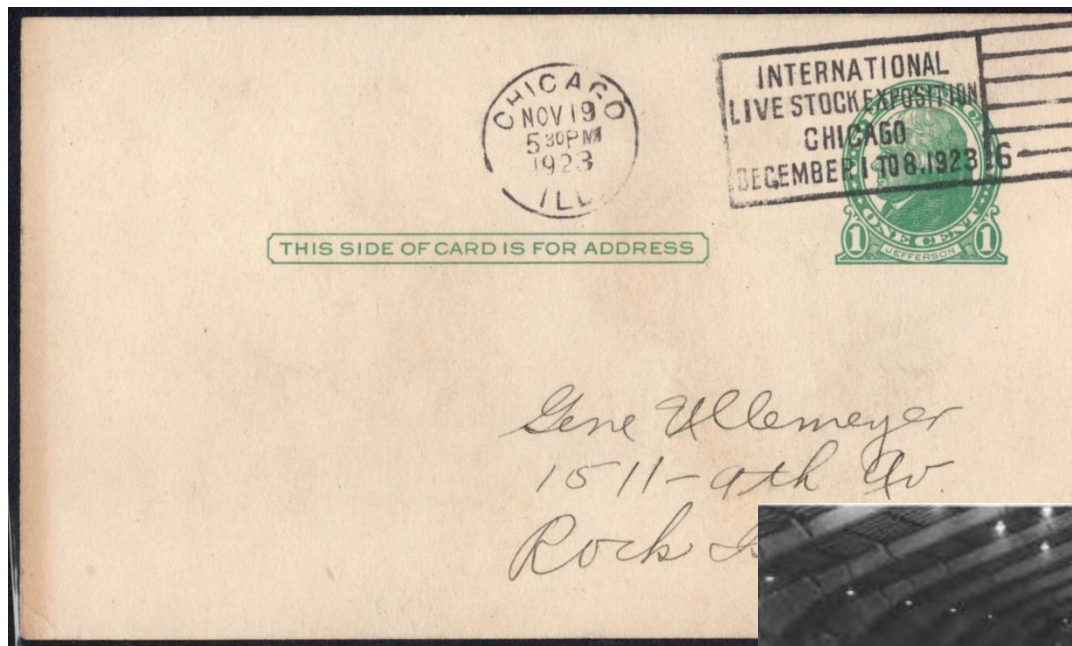 CHICAGO
NOV 19
5 30 PM
1923
ILL
INTERNATIONAL
LIVE STOCK EXPOSITION
CHICAGO
DECEMBER 1 TO 8.1923
6
THIS SIDE OF CARD IS FOR ADDRESS
1 ONE CENT 1
JEFFERSON
Gene Ullemeyer
1511-9th Av.
Rock